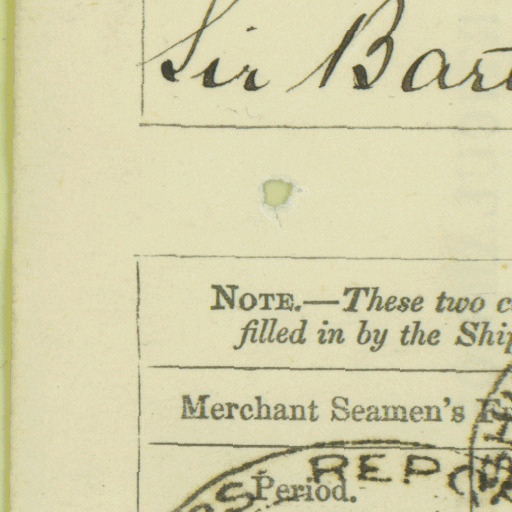 Sir Bart
NOTE.—These two c
filled in by the Ship
Merchant Seamen's Fr
REPO
Period.